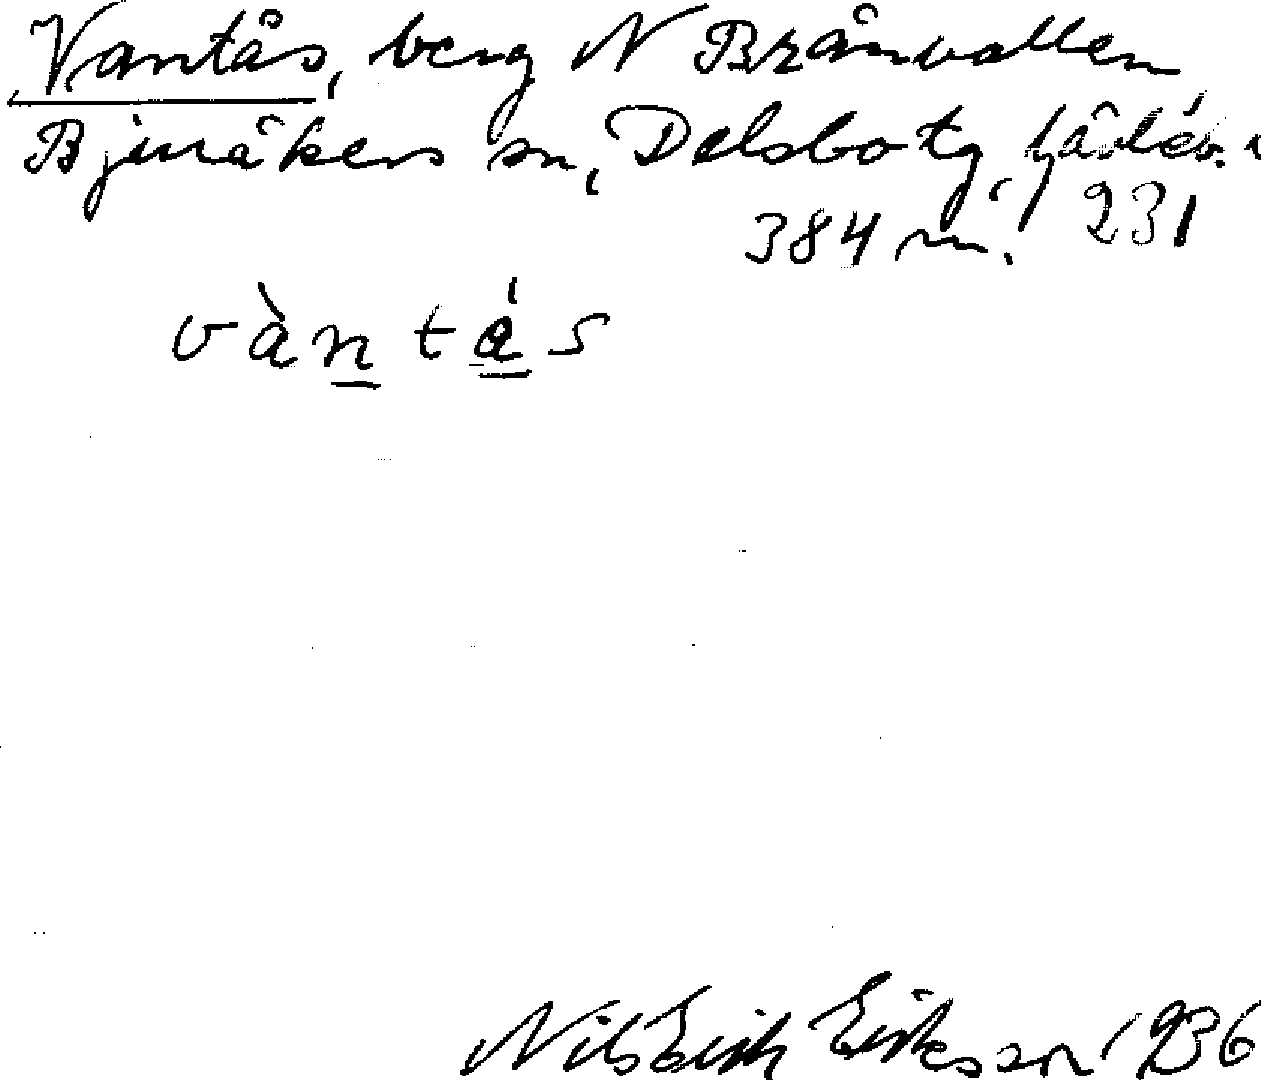 Vantås, berg N Brånvallen
Bjuråkers sn, Delsbo tg,
384 m. 231
vàntás
Nils Erik Eriksson 1936